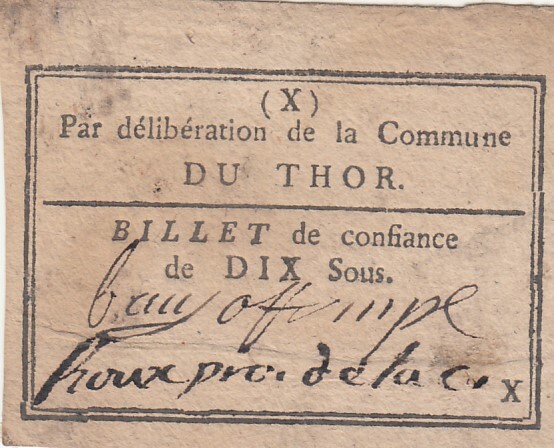 (X)
Par délibération de la Commune
DU THOR.
BILLET de confiance
de DIX Sous.
off mpl
houx pro. de la c.
X